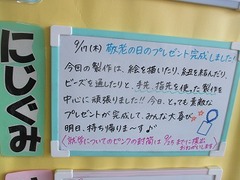 にじぐみ
9/17(木) 敬老の日のプレゼント完成しました!
今回の製作は、絵を描いたり、紐を結んだり、
ビーズを通したりと、手先、指先を使った製作を
中心に頑張りました!!今日、とっても素敵な
プレゼントが完成して、みんな大喜び
明日、持ち帰りま〜す♪
就学についてのピンクの封筒は
までに提出
おねがいします!